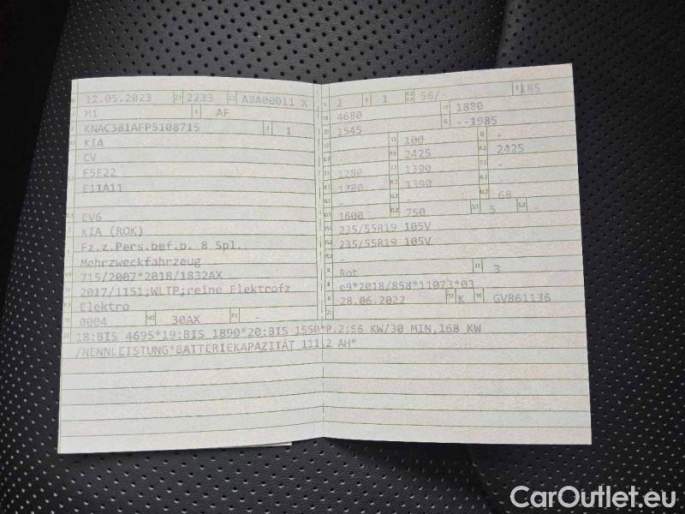 12.05.2023 2233 ABA00011 X
M1 AF
KNAC381AFP5108715 1
KIA
CV
F5E22
E11A11
EV6
KIA (ROK)
Fz.z.Pers.bef.b. 8 Spl.
Mehrzweckfahrzeug
715/2007*2018/1832AX
2017/1151;WLTP;reine Elektrofz
Elektro
0004 30AX -
18:BIS 4695*19:BIS 1890*20:BIS 1550*P.2:56 KW/30 MIN,168 KW
/NENNLEISTUNG*BATTERIEKAPAZITÄT 111,2 AH*
2 1 56/- 185
4680 1880
1545 --1985
100 -
2425 2425
1280 1390 -
1280 1390 -
- - 68
1600 750 5 -
235/55R19 105V
235/55R19 105V
Rot 3
e9*2018/858*11073*03
28.06.2022 K GV861136
CarOutlet.eu